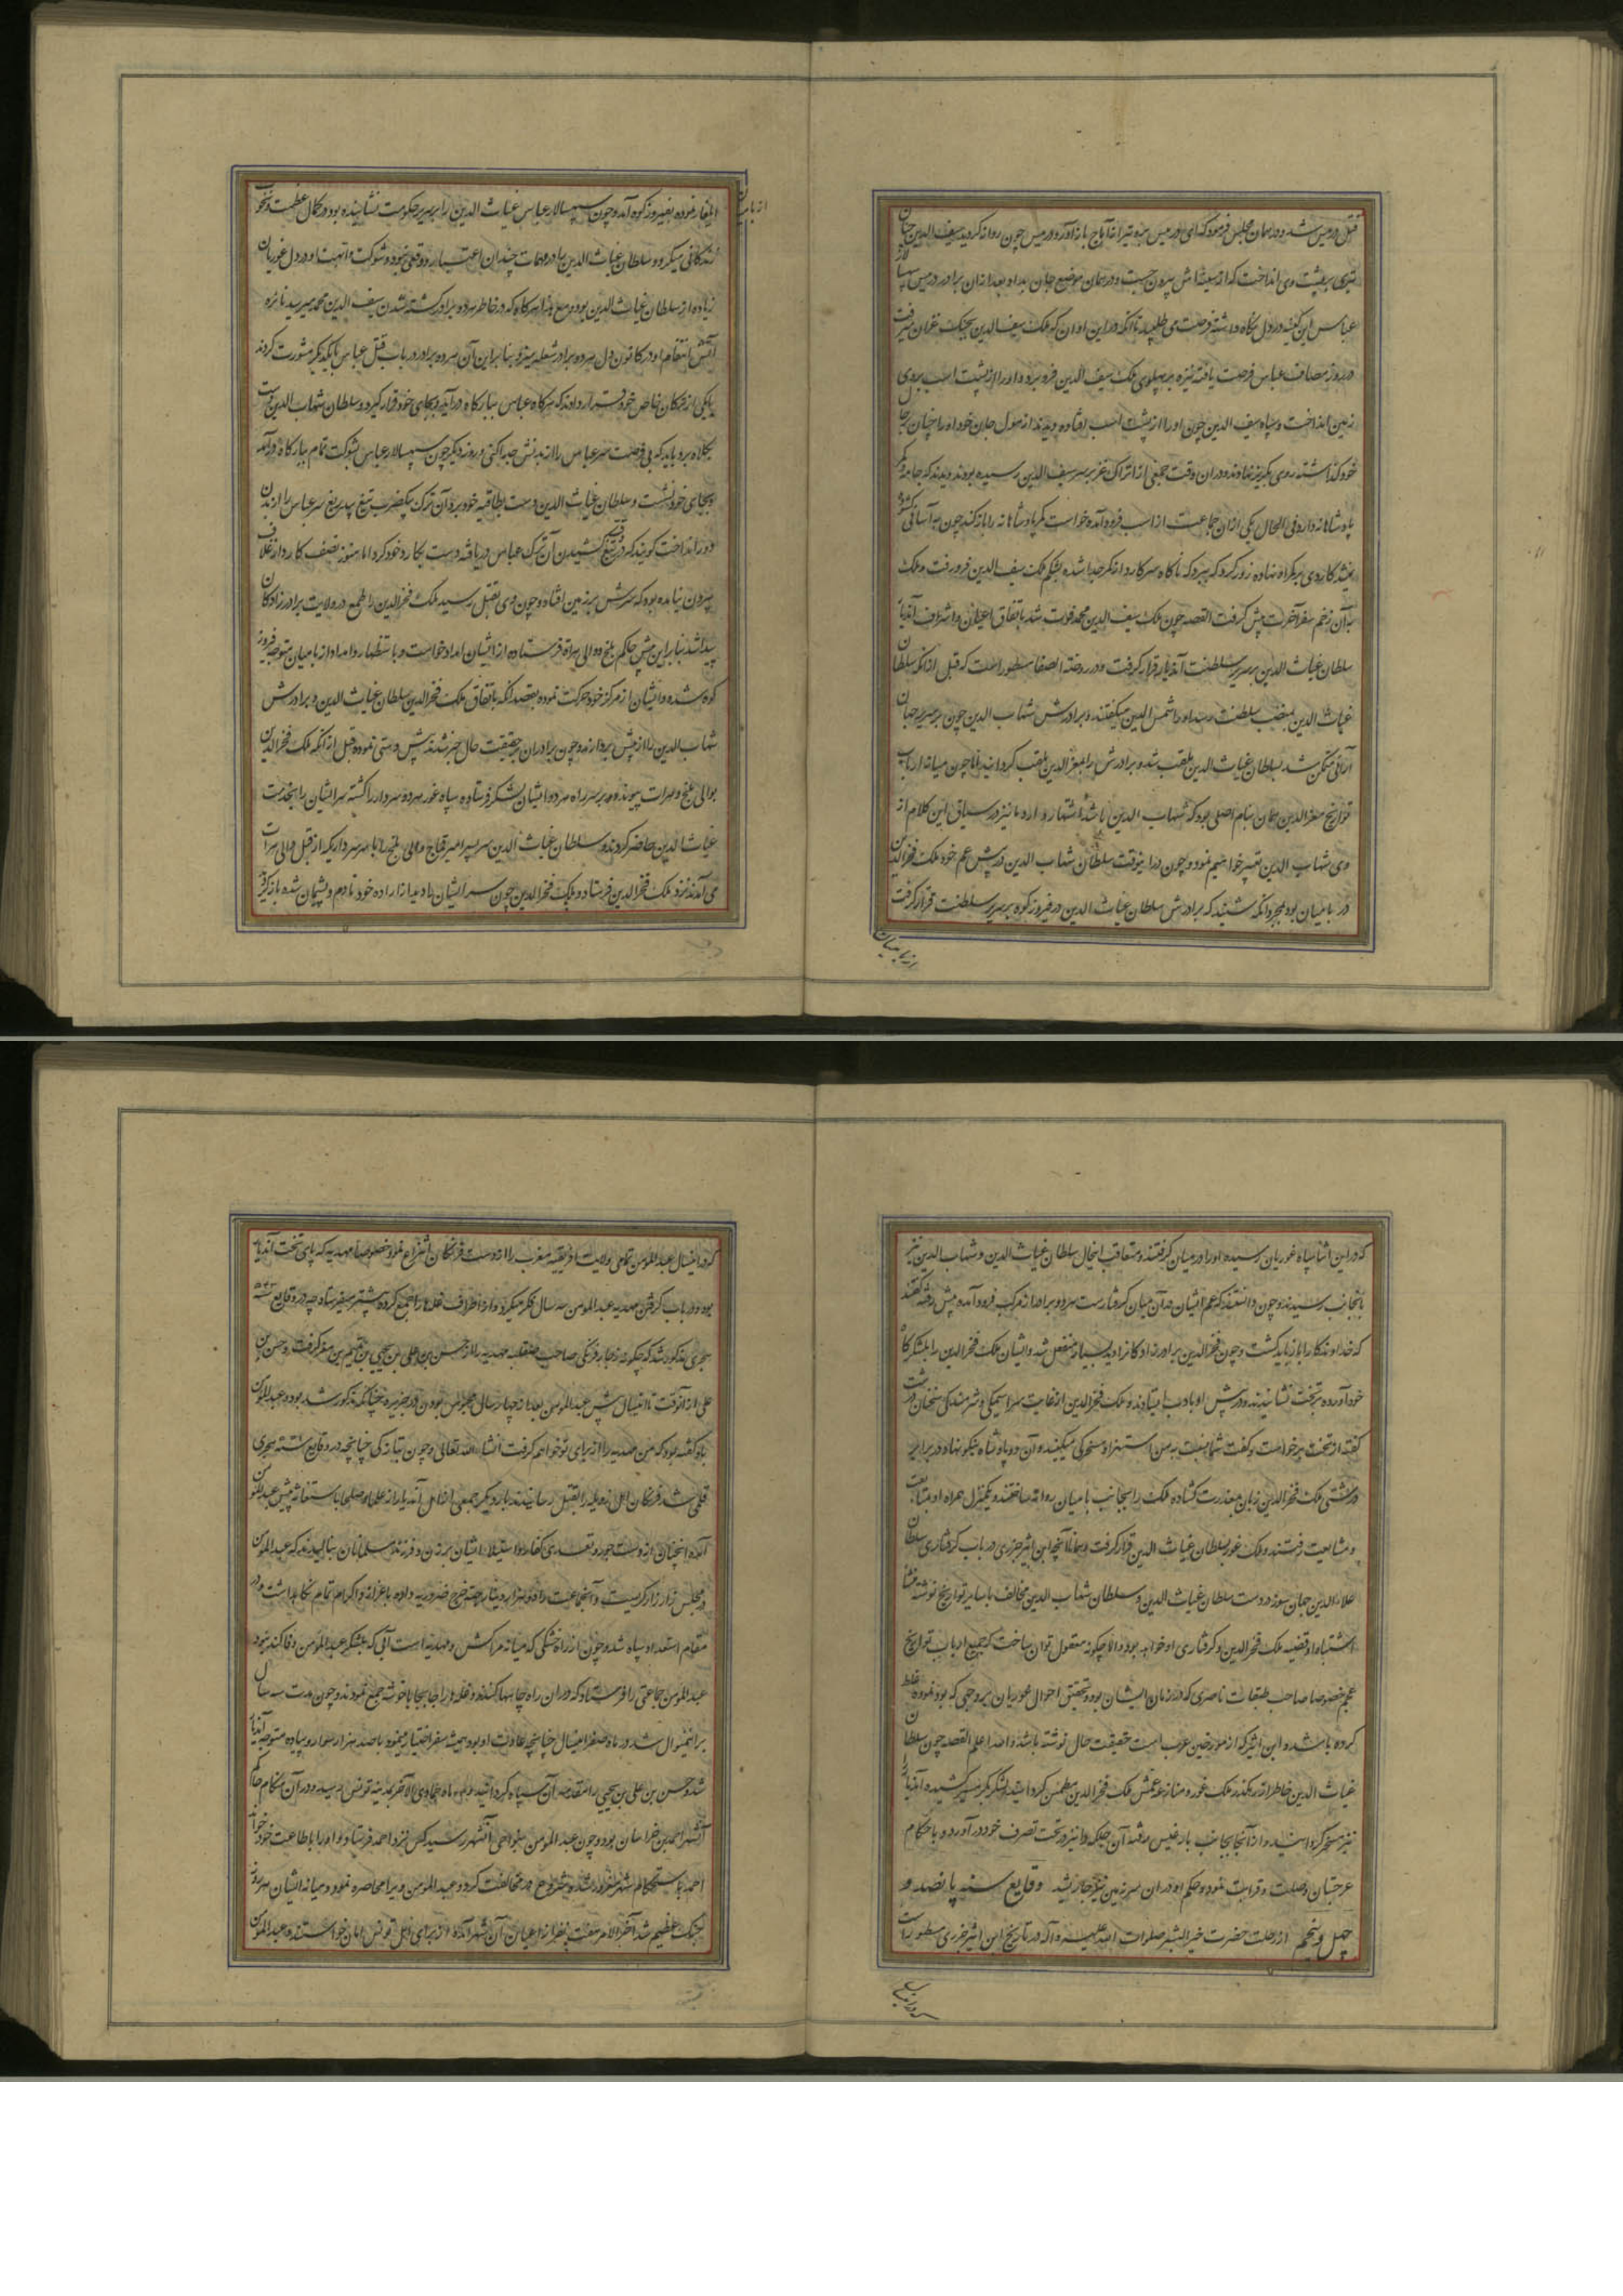 قتل درمیس شد و در همان مجلس فرمود که ای درمیس برو تیر از آماج باز آور و درمیس چون روانه گردید سیف الدین چنان
تیری بر پشت وی انداخت که از سینه اش بیرون جست و در همان موضع جان بداد و بعد از آن برادر درمیس سپهسالار
عباس این کینه در دل نگاه داشته فرصت می طلبید تا آنکه در این اوان که ملک سیف الدین بجنگ غزان میرفت
در روز مصاف عباس فرصت یافته نیزه بر پهلوی ملک سیف الدین فرو برد و او را از پشت اسب بروی
زمین انداخت و سپاه سیف الدین چون او را از پشت اسب افتاده دیدند از هول جان خود او را چنان بر جا
خود گذاشته روی بگریز نهادند و در آن وقت جمعی از اتراک غز بر سر سیف الدین رسیده بودند و دیدند که جامه و کمر
پادشاهانه دارد فی الحال یکی از آن جماعت از اسب فرود آمده خواست کمر پادشاهانه را باز کند چون به آسانی گشوده
نشد کاردی بر کمر او نهاده زور کرد که ببرد که ناگاه سر کارد از کمر جدا شده بشکم ملک سیف الدین فرو رفت و ملک
به آن زخم سفر آخرت پیش گرفت القصه چون ملک سیف الدین محمد فوت شد باتفاق اعیان و اشراف آندیار
سلطان غیاث الدین بر سریر سلطنت آندیار قرار گرفت و در روضة الصفا مسطور است که قبل از آنکه سلطان
غیاث الدین بمنصب سلطنت رسد او را شمس الدین میگفتند و برادرش شهاب الدین چون بر سریر جهان
آرائی متمکن شد بسلطان غیاث الدین ملقب شد و برادرش را بمعز الدین ملقب گردانید اما چون میانه ارباب
تواریخ معز الدین همان بنام اصلی بود که شهاب الدین باشد اشتهار دارد ما نیز در سیاق این کلام از
وی بشهاب الدین تعبیر خواهیم نمود و چون در آنوقت سلطان شهاب الدین در پیش عم خود ملک فخر الدین
در بامیان بود بمجرد آنکه شنید که برادرش سلطان غیاث الدین در فیروز کوه بر سریر سلطنت قرار گرفت
از بامیان
از بامیان
ایلغار نموده بفیروز کوه آمد و چون سپهسالار عباس غیاث الدین را بر سریر حکومت نشانیده بود در کمال عظمت و نخوت
زندگانی میکرد و سلطان غیاث الدین را در مهمات چندان اعتبار و وقعی نبود و شوکت و ابهت او در دل غوریان
زیاده از سلطان غیاث الدین بود و مع هذا هرگاه که در خاطر هر دو برادر کشته شدن سیف الدین محمد میرسید نایره
آتش انتقام او در کانون دل هر دو برادر شعله میزد بنا بر این آن هر دو برادر در باب قتل عباس با یکدیگر مشورت کردند
با یکی از ترکان خاص خود قرار دادند که هرگاه عباس ببارگاه در آید و بجای خود قرار گیرد و سلطان شهاب الدین دست
بکلاه برد باید که بی فرصت سر عباس را از بدنش جدا کنی و روز دیگر چون سپهسالار عباس بشوکت تمام ببارگاه در آمد
و بجای خود نشست و سلطان غیاث الدین دست بطاقیه خود برد آن ترک بیکضرب تیغ بیدریغ سر عباس را از بدن
دور انداخت گویند که در وقت تیغ کشیدن آن ترک عباس دریافته دست بکارد خود کرد اما هنوز نصف کارد از غلاف
بیرون نیامده بود که سرش بر زمین افتاد و چون وی بقتل رسید ملک فخر الدین را طمع در ولایت برادرزادگان
پیدا شد بنا بر این پیش حاکم بلخ و والی هراة فرستاده از ایشان امداد خواست و باستظهار و امداد از بامیان متوجه فیروز
کوه شده و ایشان از مرکز خود حرکت نموده بقصد آنکه باتفاق ملک فخر الدین سلطان غیاث الدین و برادرش
شهاب الدین را از پیش بردارند و چون برادران بر حقیقت حال خبر شدند پیش دستی نموده قبل از آنکه ملک فخر الدین
بوالی بلخ و هرات پیوندد بر سر راه هر دو ایشان لشکر فرستاده سپاه غور هر دو سردار را کشته سر ایشان را بخدمت
غیاث الدین حاضر کردند و سلطان غیاث الدین سر امیر قماج والی بلخ را با سر سرداریکه از قبل والی هرات
می آمدند نزد ملک فخر الدین فرستاد و ملک فخر الدین چون سر ایشان را دید از اراده خود نادم و پشیمان شده بازگردید
که در این اثنا سپاه غوریان رسیده او را در میان گرفتند و متعاقب اینحال سلطان غیاث الدین و شهاب الدین نیز
بآنجانب رسیدند و چون دانستند که عم ایشان در آن میان گرفتارست هر دو برادر از مرکب فرود آمده پیش رفته گفتند
که خداوندگار را باز باید گشت و چون فخر الدین برادرزادگانرا دید بسیار منفعل شد و ایشان ملک فخر الدین را بلشکرگاه
خود آورده بر تخت نشانیدند و در پیش او بادب ایستادند و ملک فخر الدین از غایت سراسیمگی و شرمندگی سخنان درشت
گفته از تخت برخواست و گفت شما نسبت به من استهزا و سخرگی میکنید و آن دو پادشاه نیکو نهاد در برابر
درشتی ملک فخر الدین زبان بمعذرت گشاده ملک را بجانب بامیان روانه ساختند و یکمنزل همراه او بمتابعت
و مشایعت رفتند و ملک غور بسلطان غیاث الدین قرار گرفت و همانا آنچه ابن اثیر جزری در باب گرفتاری سلطان
علاء الدین جهان سوز در دست سلطان غیاث الدین و سلطان شهاب الدین مخالف با سایر تواریخ نوشته منشأ
اشتباه او قضیه ملک فخر الدین و گرفتاری او خواهد بود و الا چگونه معقول توان ساخت که جمیع ارباب تواریخ
عجم خصوصا صاحب طبقات ناصری که در زمان ایشان بوده و تحقیق احوال غوریان بر وجهی که بود نموده غلط
کرده باشد و ابن اثیر که از مورخین عرب است حقیقت حال نوشته باشد و الله اعلم القصه چون سلطان
غیاث الدین خاطر از رهگذر ملک غور و منازعه عمش ملک فخر الدین مطمئن گردانید لشکر بگرمسیر کشیده آندیار را
نیز مسخر گردانید و از آنجا بجانب بادغیس رفته آن جلگه را نیز در تحت تصرف خود در آورد و با حکام
غرجستان وصلت و قرابت نمود و حکم او در آن سرزمین نیز جاری شد وقایع سنه پانصد و
چهل و پنجم از رحلت حضرت خیر البشر صلوات الله علیه و آله در تاریخ ابن اثیر جزری مسطور است
که در اینسال
که در اینسال عبد المومن تمامی ولایت افریقیه مغرب را از دست فرنگان انتزاع نمود خصوصا مهدیه که پای تخت آندیار
بود و در باب گرفتن مهدیه عبد المومن سه سال فکر میکرد و از اطراف غله ها را جمع کرده پیشتر میفرستاد چه در وقایع سنه ۵۴۳
هجری مذکور شد که چگونه زجار فرنگی صاحب صقلیه مهدیه را از حسن بن علی بن یحیی بن تمیم بن معز گرفت و حسن بن
علی از آنوقت تا اینسال پیش عبد المومن بعد از چهار سال محبوس بودن در جزیره چنانکه مذکور شد بود و عبد المومن
باو گفته بود که من مهدیه را از برای تو خواهم گرفت انشاء الله تعالی و چون بتازگی چنانچه در وقایع سنه هجری
قلمی شد فرنگان اهل زویله را بقتل رسانیدند بار دیگر جمعی از اهل آندیار از علما و صلحا باستغاثه پیش عبد المومن
آمده آنچنان از دست جور و تعدی کفار و استیلاء ایشان بر زن و فرزند مسلمانان بنالیدند که عبد المومن
در مجلس زار زار گریست و آنجماعت را دو هزار دینار جهة خرج ضروریه داده باعزاز و اکرام تمام نگاهداشت و در
مقام استعداد سپاه شد و چون از راه خشکی که میانه مراکش و مهدیه است آبی که بلشکر عبد المومن وفا کند نبود
عبد المومن جماعتی را فرستاد که در آن راه چاهها کنند و غله را جابجا با خوشه جمع نمودند و چون مدت سه سال
بر اینمنوال شد در ماه صفر اینسال چنانچه عادت او بود همیشه سفر اختیار مینمود با صد هزار سوار و پیاده متوجه آندیار
شد و حسن بن علی بن یحیی را مقدمه آن سپاه گردانید و در ماه جمادی الآخر بمدینه تونس رسید و در آن هنگام حاکم
آنشهر احمد بن خراسان بود و چون عبد المومن بنواحی آنشهر رسید کس نزد احمد فرستاد و او را باطاعت خود خواند
احمد باستحکام شهر مغرور شد و شروع در مخالفت کرد و عبد المومن ویرا محاصره نمود و میانه ایشان سه روز
جنگ عظیم شد آخر الامر هفت نفر از اعیان آن شهر آمده از برای اهل تونس امان خواستند و عبد المومن